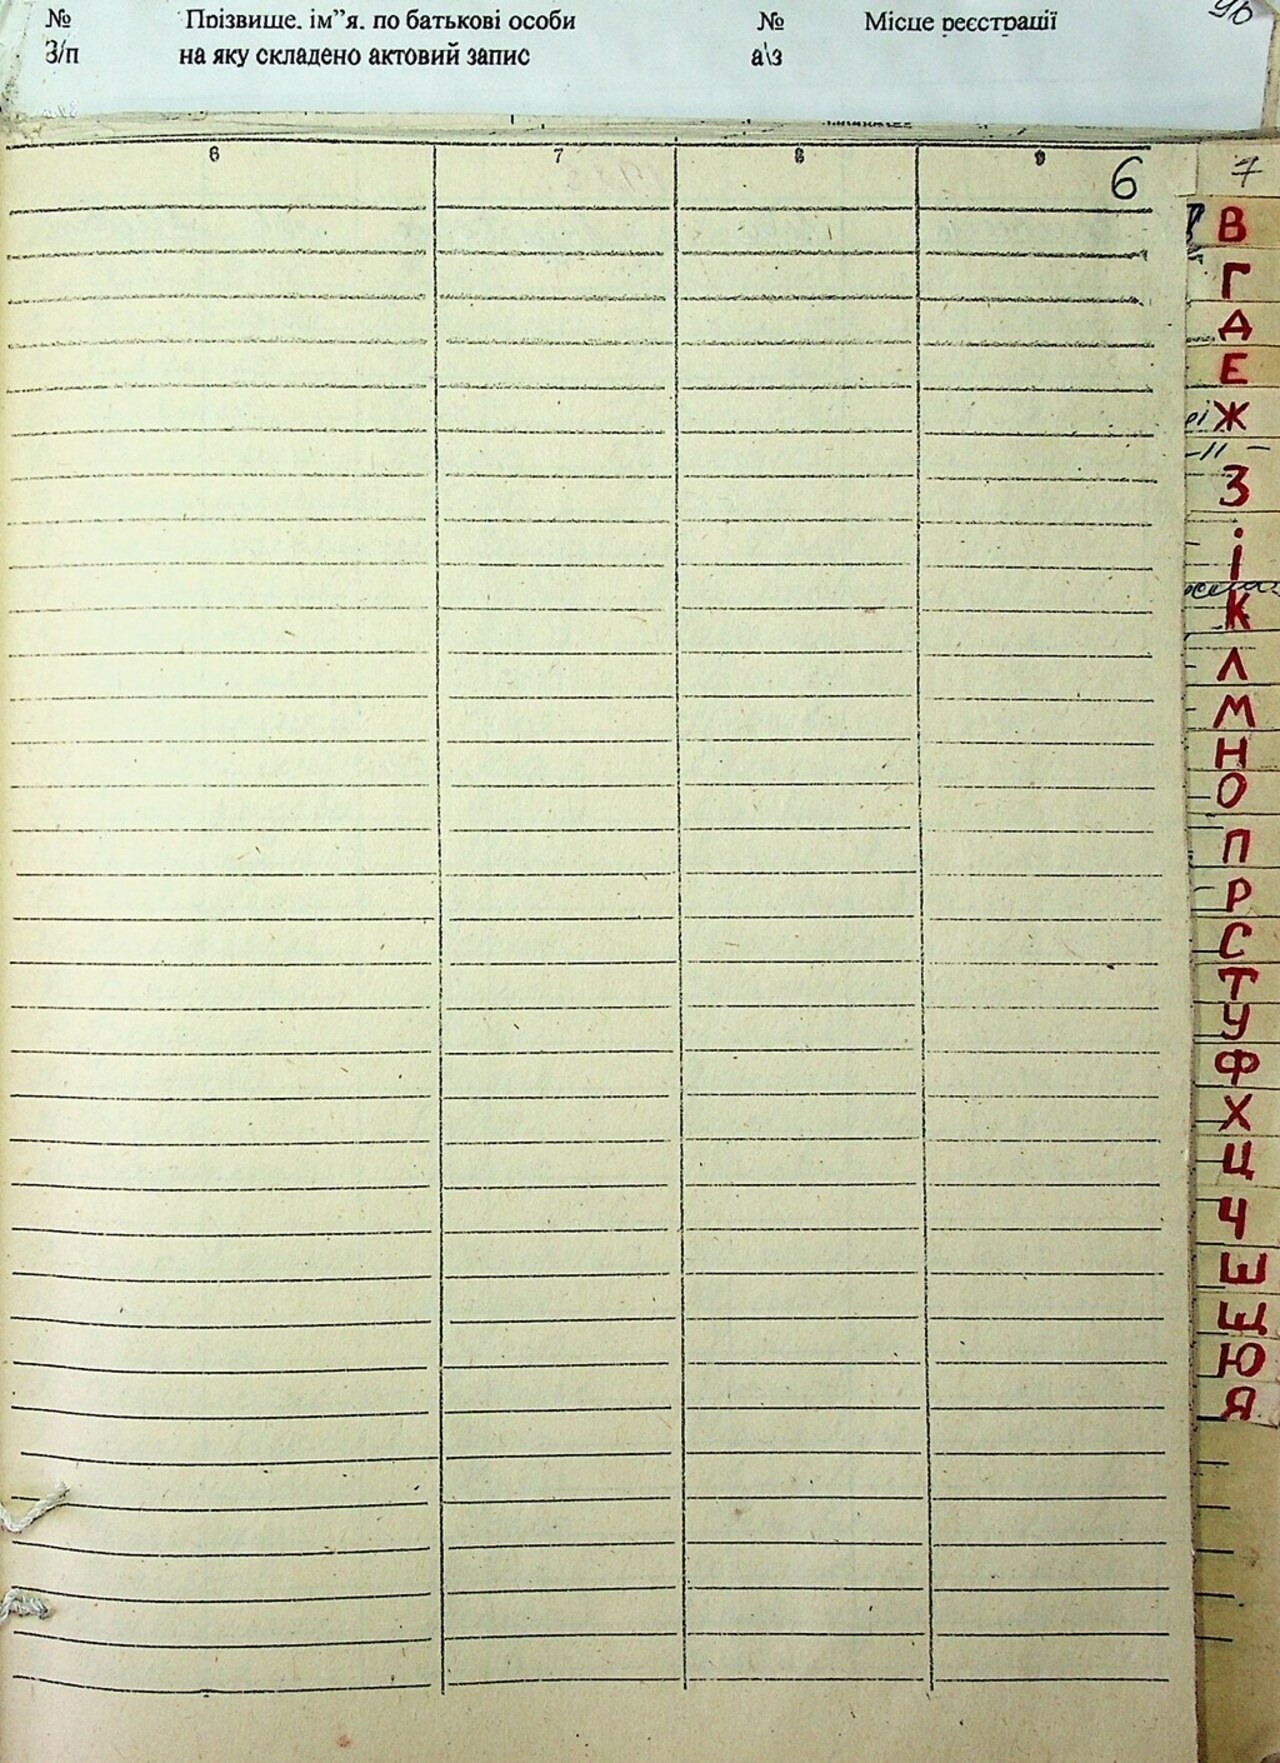 № Прізвище, ім”я, по батькові особи № Місце реєстрації
З/п на яку складено актовий запис а\з
6 7 8 9
6
7
В
Г
Д
Е
Ж
З
і
К
Л
М
Н
О
П
Р
С
Т
У
Ф
Х
Ц
Ч
Ш
Щ
Ю
Я